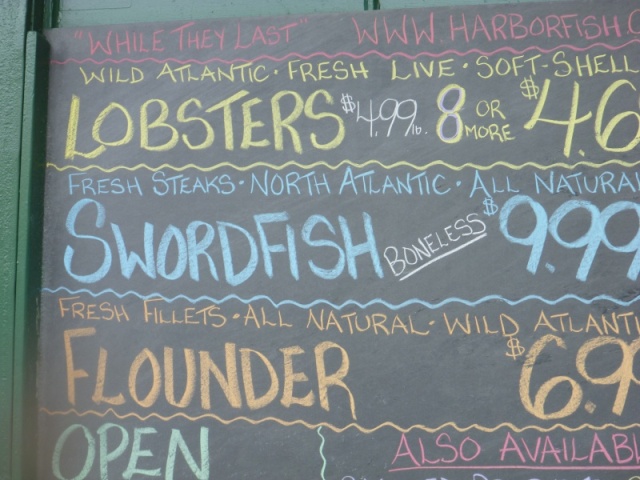 "WHILE THEY LAST" WWW.HARBORFISH.C
WILD ATLANTIC · FRESH LIVE · SOFT-SHELL
LOBSTERS $4.99 lb. 8 OR MORE $4.6
FRESH STEAKS · NORTH ATLANTIC · ALL NATURAL
SWORDFISH BONELESS $9.99
FRESH FILLETS · ALL NATURAL · WILD ATLANTI
FLOUNDER $6.9
OPEN ALSO AVAILABL